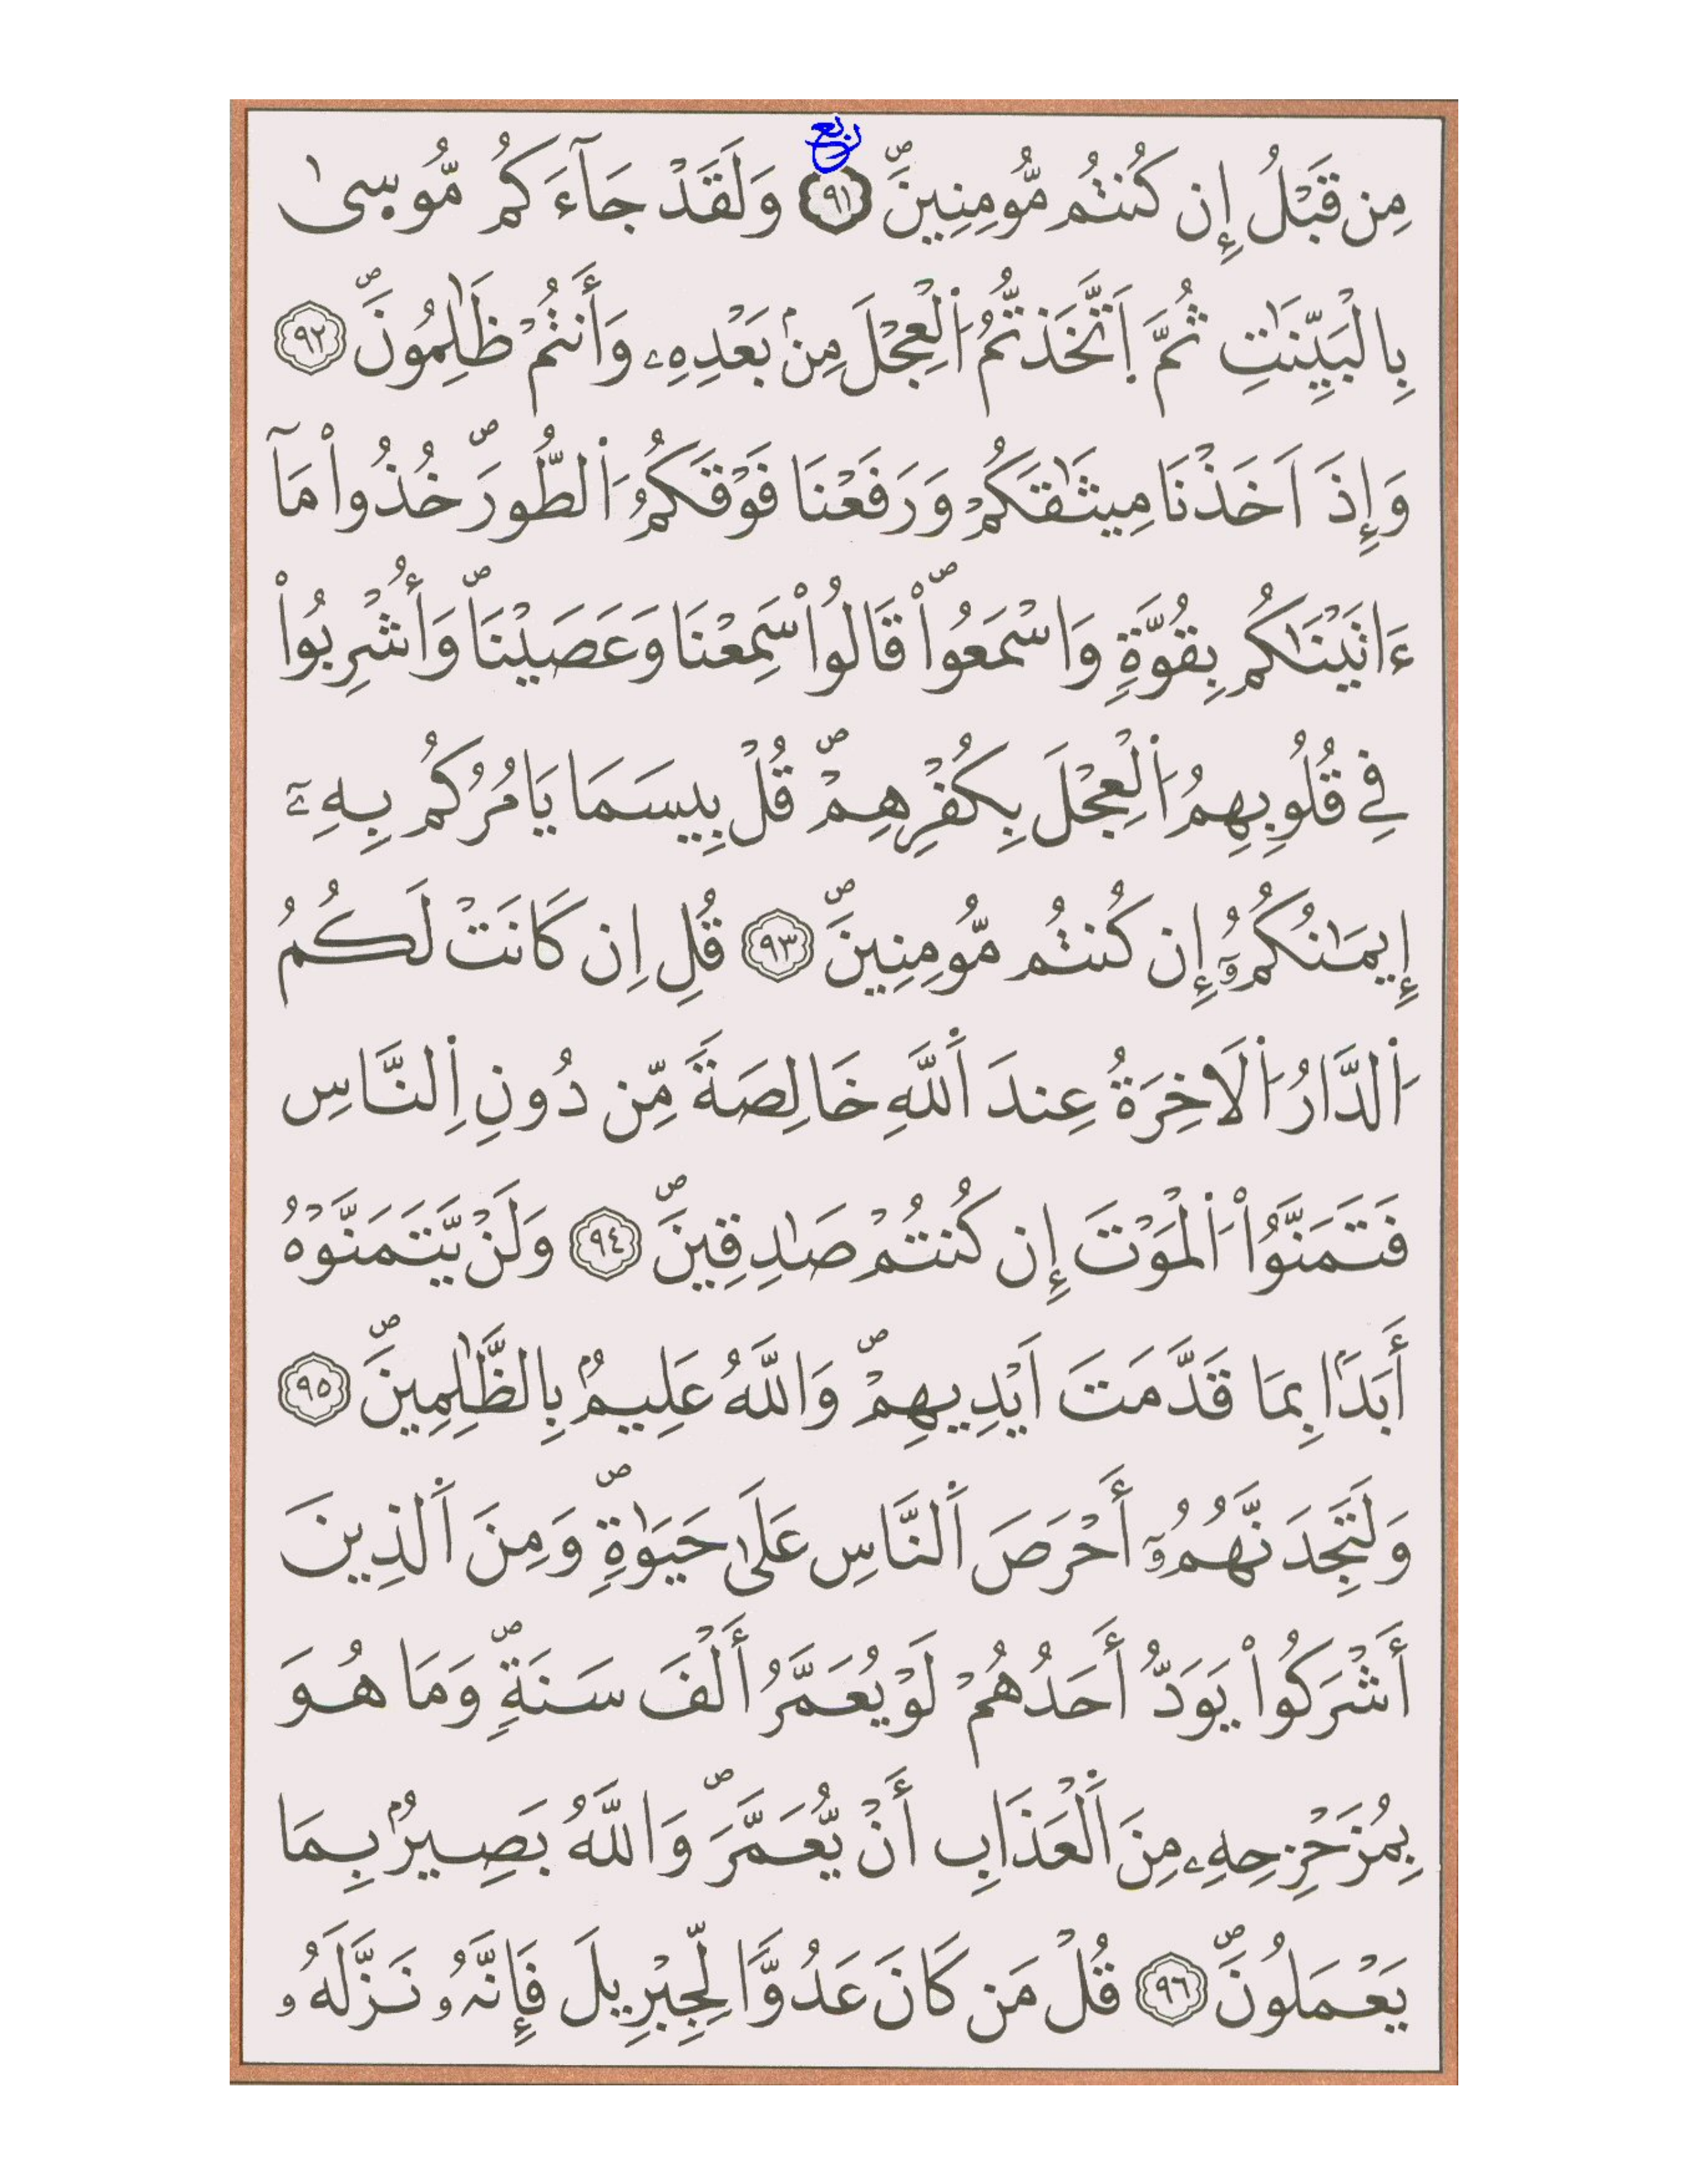 ربع
مِن قَبْلُ إِن كُنتُم مُّومِنِينَۖ ٩١ وَلَقَدْ جَآءَكُم مُّوسىٰ
بِالْبَيِّنَٰتِ ثُمَّ اَ۪تَّخَذتُّمُ اُ۬لْعِجْلَ مِنۢ بَعْدِهِۦ وَأَنتُمْ ظَٰلِمُونَۖ ٩٢
وَإِذَ اَخَذْنَا مِيثَٰقَكُمْ وَرَفَعْنَا فَوْقَكُمُ اُ۬لطُّورَۖ خُذُواْ مَآ
ءَاتَيْنَٰكُم بِقُوَّةٍ وَاسْمَعُواْۖ قَالُواْ سَمِعْنَا وَعَصَيْنَاۖ وَأُشْرِبُواْ
فِي قُلُوبِهِمُ اُ۬لْعِجْلَ بِكُفْرِهِمْۖ قُلْ بِيسَمَا يَامُرُكُم بِهِۦٓ
إِيمَٰنُكُمُۥٓ إِن كُنتُم مُّومِنِينَۖ ٩٣ قُلِ اِن كَانَتْ لَكُمُ
اُ۬لدَّارُ اُ۬لَاخِرَةُ عِندَ اَ۬للَّهِ خَالِصَةً مِّن دُونِ اِ۬لنَّاسِ
فَتَمَنَّوُاْ اُ۬لْمَوْتَ إِن كُنتُمْ صَٰدِقِينَۖ ٩٤ وَلَنْ يَّتَمَنَّوْهُ
أَبَدَاۢ بِمَا قَدَّمَتَ اَيْدِيهِمْۖ وَاللَّهُ عَلِيمُۢ بِالظَّٰلِمِينَۖ ٩٥
وَلَتَجِدَنَّهُمُۥٓ أَحْرَصَ اَ۬لنَّاسِ عَلَىٰ حَيَوٰةٖۖ وَمِنَ اَ۬لذِينَ
أَشْرَكُواْ يَوَدُّ أَحَدُهُمْ لَوْ يُعَمَّرُ أَلْفَ سَنَةٍۖ وَمَا هُوَ
بِمُزَحْزِحِهِۦ مِنَ اَ۬لْعَذَابِ أَنْ يُّعَمَّرَۖ وَاللَّهُ بَصِيرُۢ بِمَا
يَعْمَلُونَۖ ٩٦ قُلْ مَن كَانَ عَدُوّٗا لِّجِبْرِيلَ فَإِنَّهُۥ نَزَّلَهُۥ